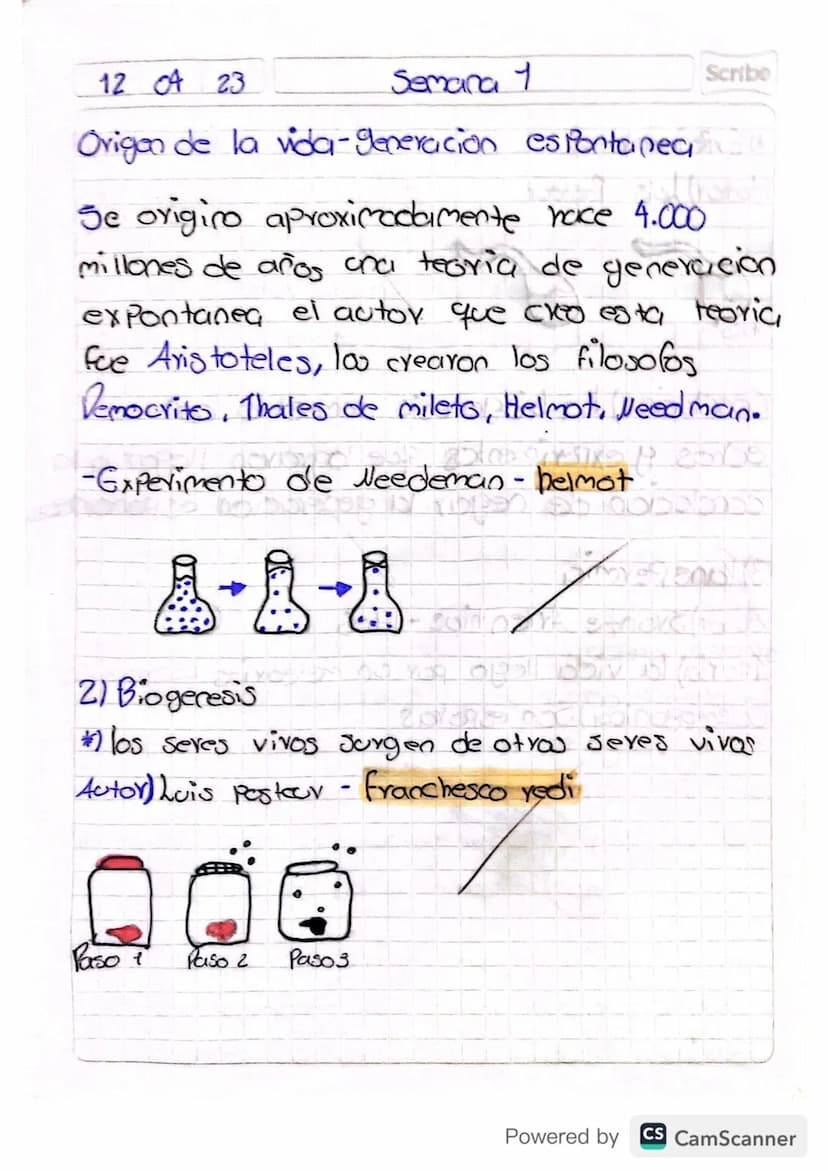 12 04 23 Semana 1 Scribe
Origen de la vida-generacion espontanea
Se origino aproximadamente hace 4.000
millones de años una teoria de generacion
expontanea el actor que creo esta teoria
fue Aristoteles, las crearon los filosofos
Democrito, Thales de mileto, Helmot, Needman.
-Experimento de Needeman - helmot
2) Biogenesis
*) los seres vivos surgen de otros seres vivos
Autor) Luis pasteur - franchesco redi
Paso 1 Paso 2 Paso 3
Powered by CS CamScanner